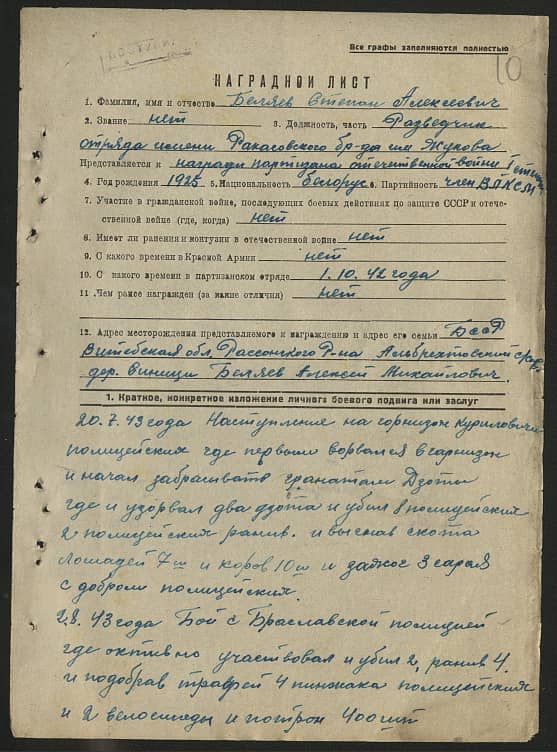 Все графы заполняются полностью
10
НАГРАДНОЙ ЛИСТ
1. Фамилия, имя и отчество Беляев Степан Алексеевич
2. Звание нет 3. Должность, часть Разведчик
отряда имени Рокасовского бр-ды им. Жукова
Представляется к награди партизана отечественной войны 1 степени
4. Год рождения 1925 5. Национальность белорус 6. Партийность член ВЛКСМ
7. Участие в гражданской войне, последующих боевых действиях по защите СССР и отече-
ственной войне (где, когда) нет
8. Имеет ли ранения и контузии в отечественной войне нет
9. С какого времени в Красной Армии нет
10. С какого времени в партизанском отряде 1.10.42 года
11. Чем ранее награжден (за какие отличия) нет
12. Адрес месторождения представляемого к награждению и адрес его семьи БССР
Витебская обл. Россонского р-на Альбрехтовский
дер. Виницы Беляев Алексей Михайлович.
1. Краткое, конкретное изложение личного боевого подвига или заслуг
20.7.43 года Наступление на горнизон Куриловичи
полицейских где первым ворвался в гарнизон
и начал забрасывать гранатами Дзоты
где и узорвал два дзота и убил 8 полицейских
2 полицейских ранив. и выгнав скота
Лошадей 7 ш и коров 10 ш и зажог 3 сарая
с добром полицейских.
2.8.43 года Бой с Браславской полицией
где активно участвовал и убил 2, ранив 4.
и подобрав трафей 4 пинжака полицейских
и 2 велосипеды и потрон 400 шт